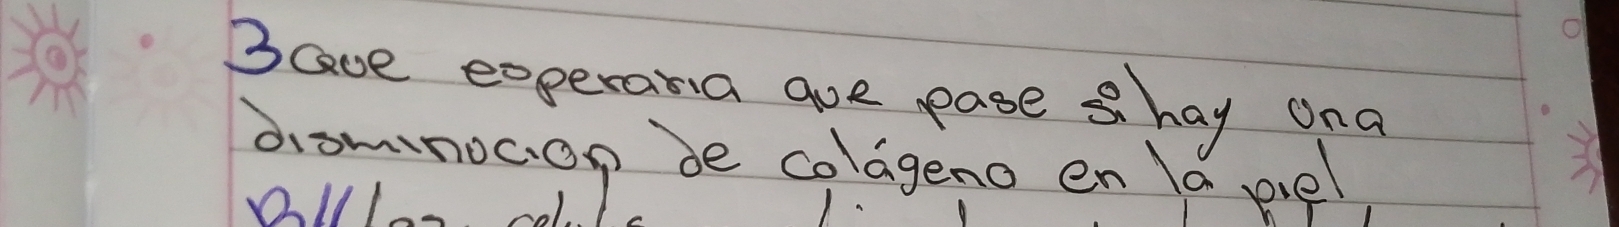 3 Que esperaria que pase si hay una
disminucion de colágeno en la piel
R// las